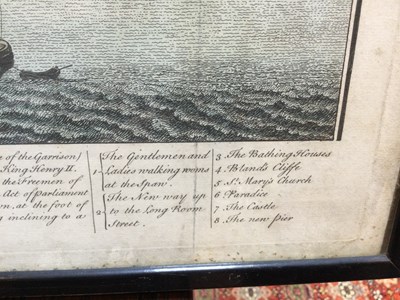 of the Garrison)
King Henry II.
the Freemen of
Act of Parliament
n, at the foot of
y inclining to a
The Gentlemen and
1- Ladies walking rooms
at the Spaw.
The New way up
2- to the Long Room
Street.
3 The Bathing Houses
4 Blands Cliffe
5 St. Mary's Church
6 Paradice
7 The Castle
8 The new Pier